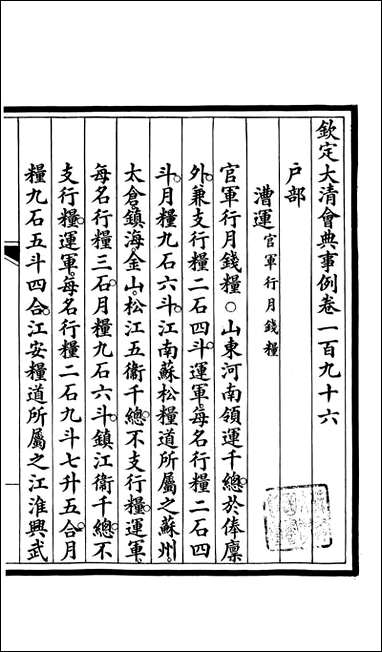 欽定大清會典事例卷一百九十六
戶部
漕運官軍行月錢糧
官軍行月錢糧○山東河南領運千總於俸廩
外兼支行糧二石四斗運軍每名行糧二石四
斗月糧九石六斗江南蘇松糧道所屬之蘇州
太倉鎮海金山松江五衞千總不支行糧運軍
每名行糧三石月糧九石六斗鎮江衞千總不
支行糧運軍每名行糧二石九斗七升五合月
糧九石五斗四合江安糧道所屬之江淮興武